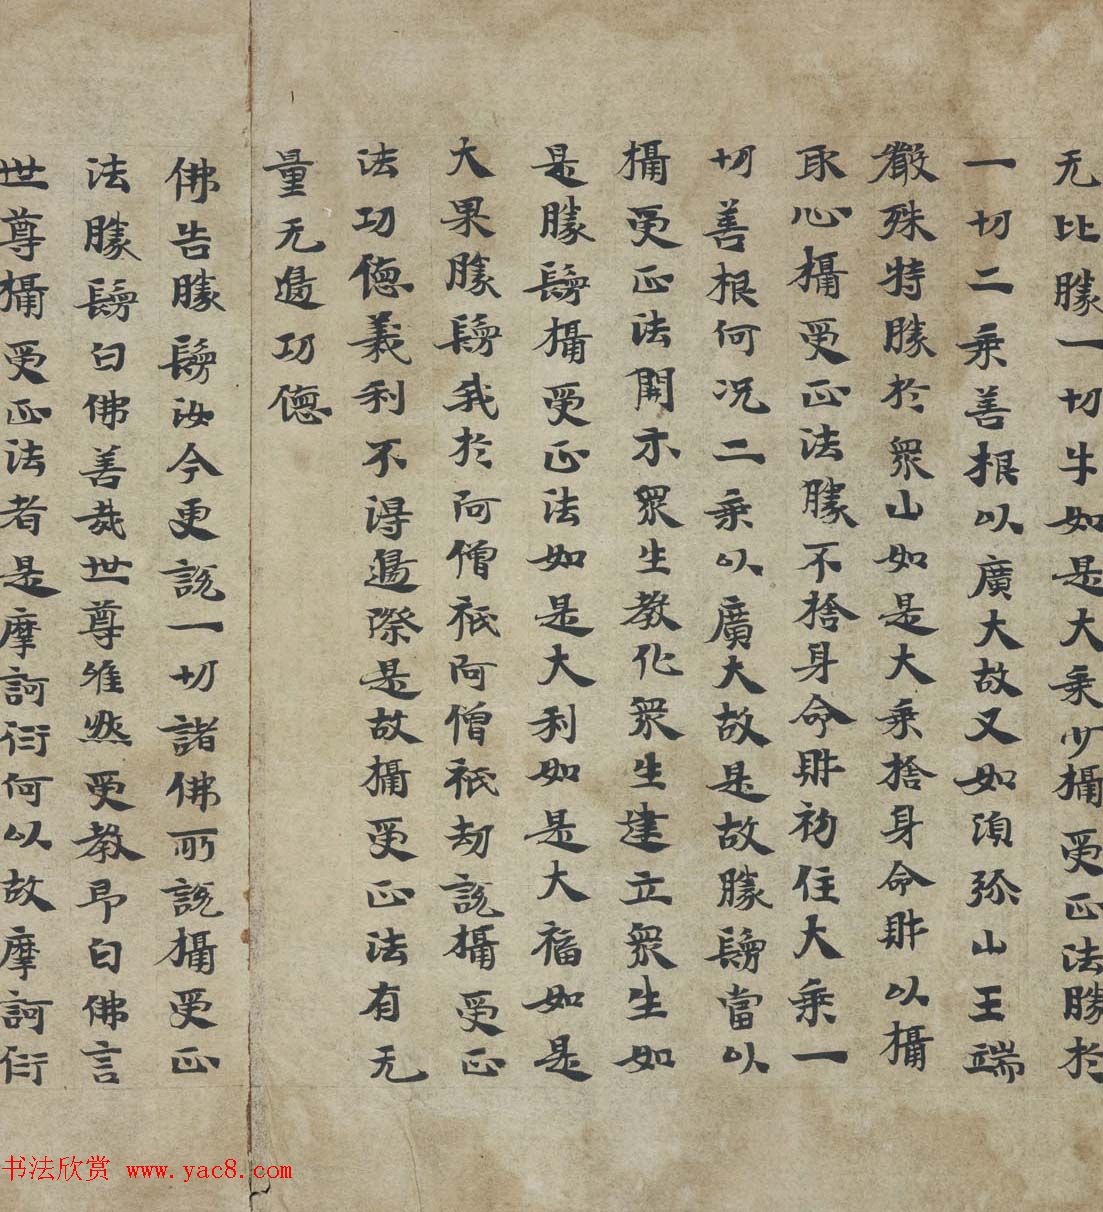 无比勝一切牛如是大乘少攝受正法勝於
一切二乘善根以廣大故又如湏弥山王端
嚴殊特勝於衆山如是大乘捨身命財以攝
取心攝受正法勝不捨身命財初住大乘一
切善根何况二乘以廣大故是故勝鬘當以
攝受正法開示衆生教化衆生建立衆生如
是勝鬘攝受正法如是大利如是大福如是
大果勝鬘我於阿僧祇阿僧祇劫說攝受正
法功德義利不得邊際是故攝受正法有无
量无邊功德
佛告勝鬘汝今更說一切諸佛所說攝受正
法勝鬘白佛善哉世尊唯然受教即白佛言
世尊攝受正法者是摩訶衍何以故摩訶衍
书法欣赏 www.yac8.com